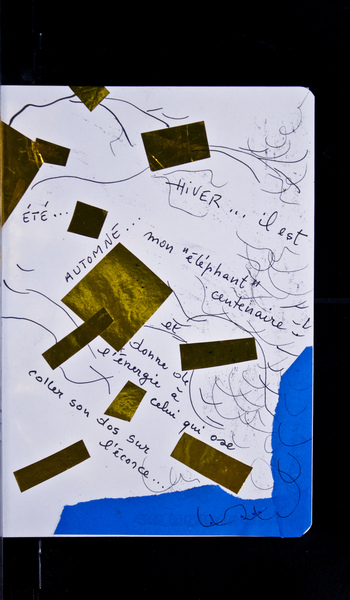 ÉTÉ...
AUTOMNE...
HIVER... il est
mon "éléphant"
centenaire
et
donne de
l'énergie à
celui qui ose
coller son dos sur
l'écorce...